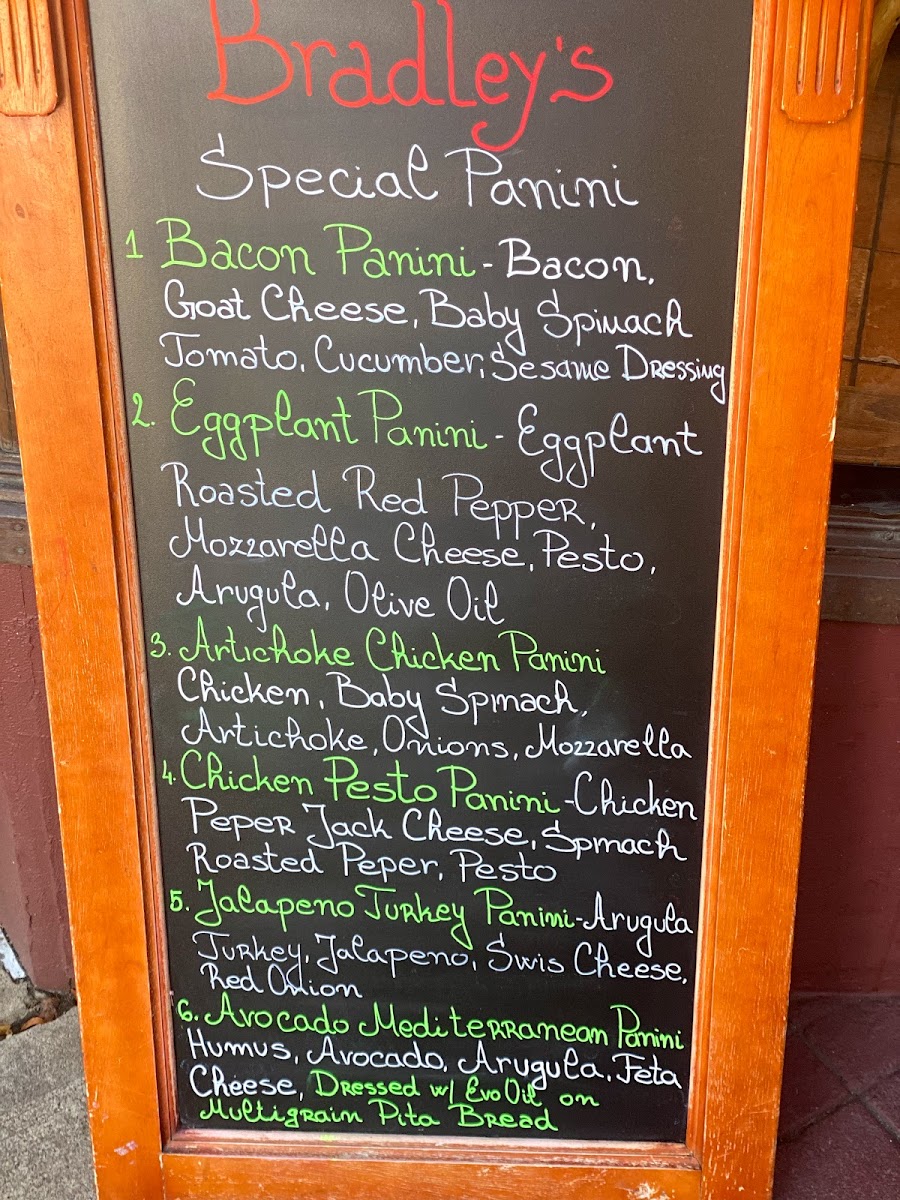 Bradley's
Special Panini
1 Bacon Panini - Bacon,
Goat Cheese, Baby Spinach
Tomato, Cucumber, Sesame Dressing
2. Eggplant Panini - Eggplant
Roasted Red Pepper,
Mozzarella Cheese, Pesto,
Arugula, Olive Oil
3. Artichoke Chicken Panini
Chicken, Baby Spinach,
Artichoke, Onions, Mozzarella
4. Chicken Pesto Panini - Chicken
Peper Jack Cheese, Spinach
Roasted Peper, Pesto
5. Jalapeno Turkey Panini - Arugula
Turkey, Jalapeno, Swis Cheese,
Red Onion
6. Avocado Mediterranean Panini
Humus, Avocado, Arugula, Feta
Cheese, Dressed w/ Evo Oil on
Multigrain Pita Bread